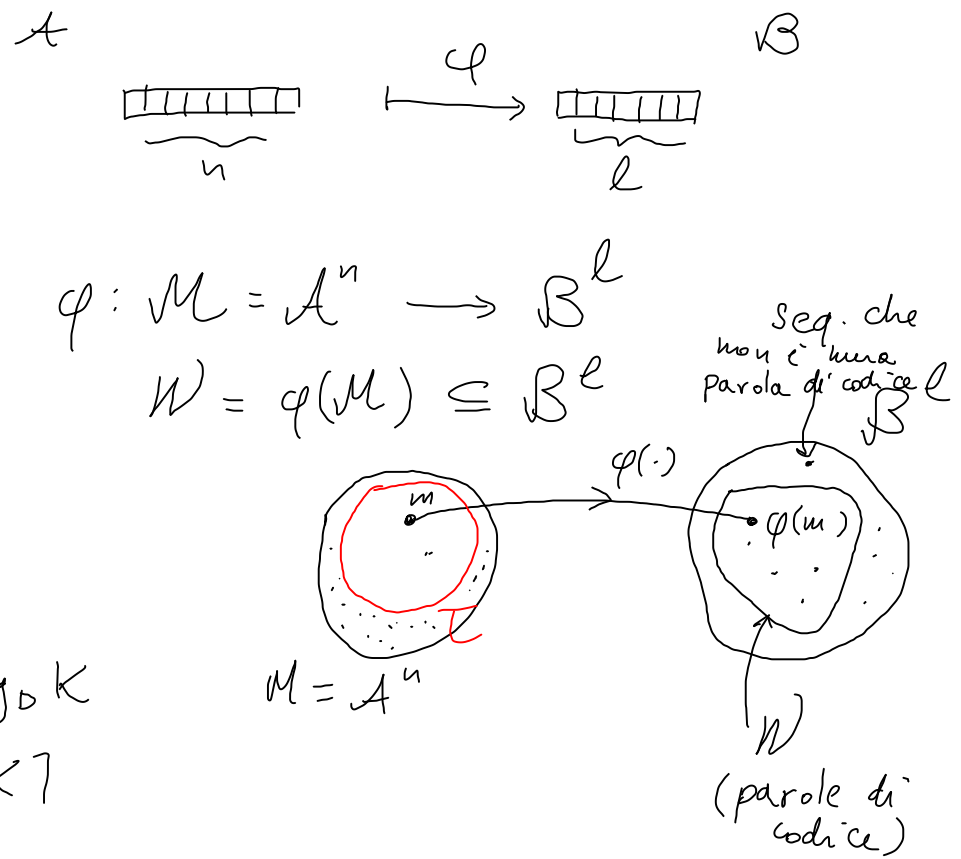 A B
φ
n l
φ : M = Aⁿ → Bˡ
W = φ(M) ⊆ Bˡ
seq. che
non è una
parola di codice
Bˡ
φ(·)
m
φ(m)
τ
M = Aⁿ
W
(parole di
codice)
K